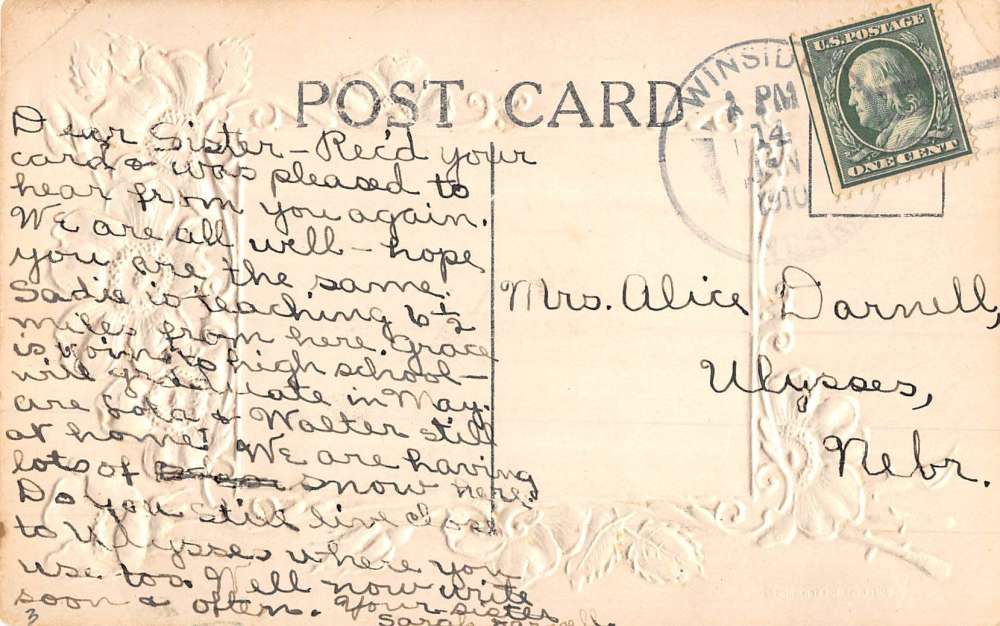 POST CARD
WINSIDE
1 PM
14
JAN
1910
U.S. POSTAGE
ONE CENT
Dear Sister - Rec'd your
card & was pleased to
hear from you again.
We are all well - hope
you are the same.
Sadie is teaching 6½
miles from here. Grace
is going to high school -
will graduate in May.
are Lola & Walter still
at home? We are having
lots of snow here.
Do you still live close
to Ulysses where you
use too. Well now write
soon & often. Your sister
Sarah Darnell.
3
Mrs. Alice Darnell,
Ulysses,
Nebr.